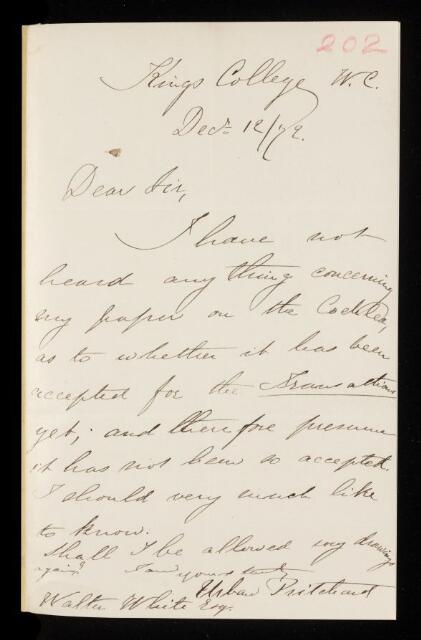 202
Kings College W.C.
Decr 12/72.
Dear Sir,
I have not
heard any thing concerning
my paper on the Cochlea,
as to whether it has been
accepted for the Transactions
yet; and therefore presume
it has not been so accepted.
I should very much like
to know.
Shall I be allowed my drawings
again? I am yours truly,
Urban Pritchard
Walter White Esq.